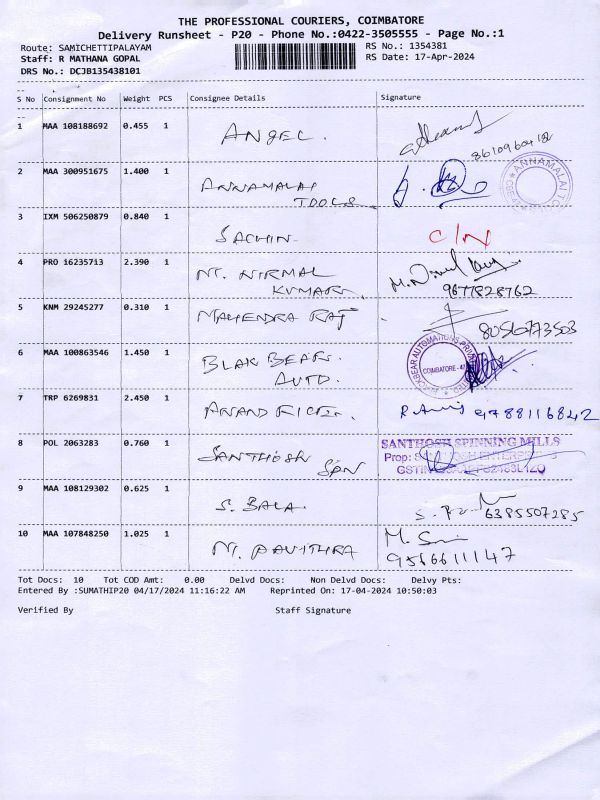 THE PROFESSIONAL COURIERS, COIMBATORE
Delivery Runsheet - P20 - Phone No.:0422-3505555 - Page No.:1
Route: SAMICHETTIPALAYAM
RS No.: 1354381
Staff: R MATHANA GOPAL
RS Date: 17-Apr-2024
DRS No.: DCJB135438101
S No Consignment No Weight PCS Consignee Details Signature
1 MAA 108188692 0.455 1 ANGEL.
8610960412
2 MAA 300951675 1.400 1 ANNAMALAI
TOOLS
ANNAMALAI TO
3 IXM 506250879 0.840 1 SACHIN C/N
4 PRO 16235713 2.390 1 NIRMAL
KUMAR
9677828762
5 KNM 29245277 0.310 1 MAHENDRA RAJ
8056773503
6 MAA 100863546 1.450 1 BLAK BEAR.
AUTO.
BLACKBEAR AUTOMATIONS PRIVATE LIMITED
COIMBATORE - 47
7 TRP 6269831 2.450 1 ANAND
9788116842
8 POL 2063283 0.760 1 SANTHOSH SPN
SANTHOSH SPINNING MILLS
Prop:
GSTIN
9 MAA 108129302 0.625 1 S. BALA.
6385507285
10 MAA 107848250 1.025 1 PAVITHRA
9566611147
Tot Docs: 10 Tot COD Amt: 0.00 Delvd Docs: Non Delvd Docs: Delvy Pts:
Entered By :SUMATHIP20 04/17/2024 11:16:22 AM Reprinted On: 17-04-2024 10:50:03
Verified By Staff Signature